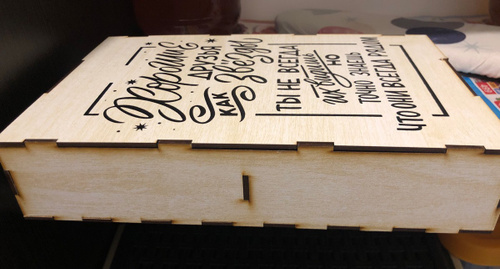 Хорошие
друзья
как Звезды
ты не всегда
их видишь
но
точно знаешь
что они всегда рядом